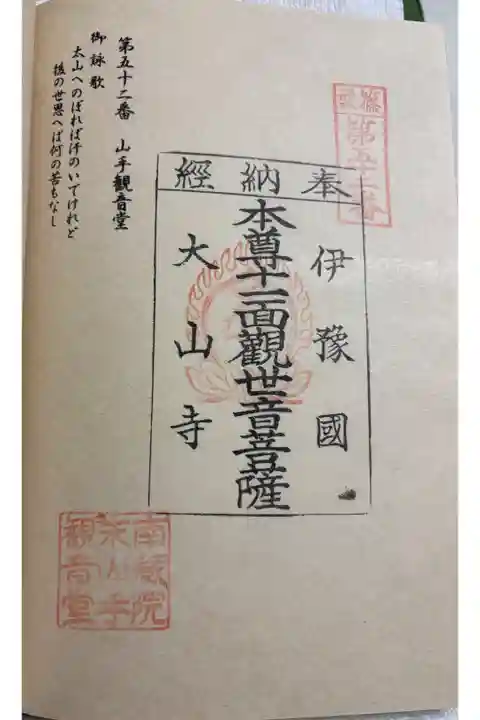 第五十二番
奉納經
伊豫國
本尊十一面觀世音菩薩
大山寺
南蔵院
山手
観音堂
第五十二番 山手観音堂
御詠歌
太山へのぼれば汗のいでけれど
後の世思へば何の苦もなし